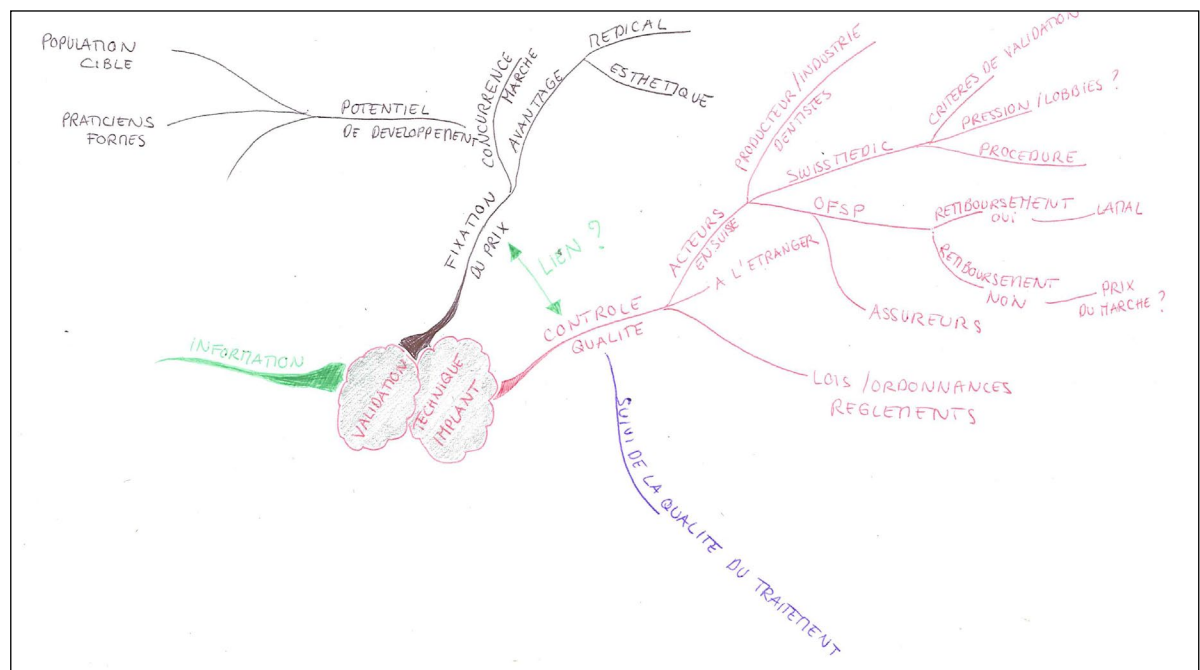 POPULATION
CIBLE
PRATICIENS
FORMES
POTENTIEL
DE DEVELOPPEMENT
CONCURRENCE
MARCHE
AVANTAGE
MEDICAL
ESTHETIQUE
FIXATION
DU PRIX
LIEN ?
INFORMATION
VALIDATION
TECHNIQUE
IMPLANT
CONTROLE
QUALITE
ACTEURS
EN SUISE
PRODUCTEUR/INDUSTRIE
DENTISTES
SWISSMEDIC
CRITERES DE VALIDATION
PRESSION/LOBBIES ?
PROCEDURE
OFSP
REMBOURSEMENT
OUI
LAMAL
REMBOURSEMENT
NON
PRIX
DU MARCHE ?
ASSUREURS
A L'ETRANGER
LOIS/ORDONNANCES
REGLEMENTS
SUIVI DE LA QUALITE DU TRAITEMENT